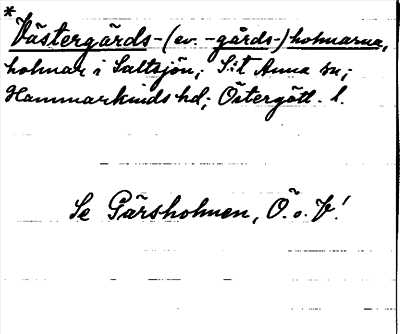 *
Västergårds-(ev. -gärds-)holmarna,
holmar i Saltsjön; S:t Anna sn;
Hammarkinds hd; Östergötl. l.
Se Gärsholmen, Ö. o. F!